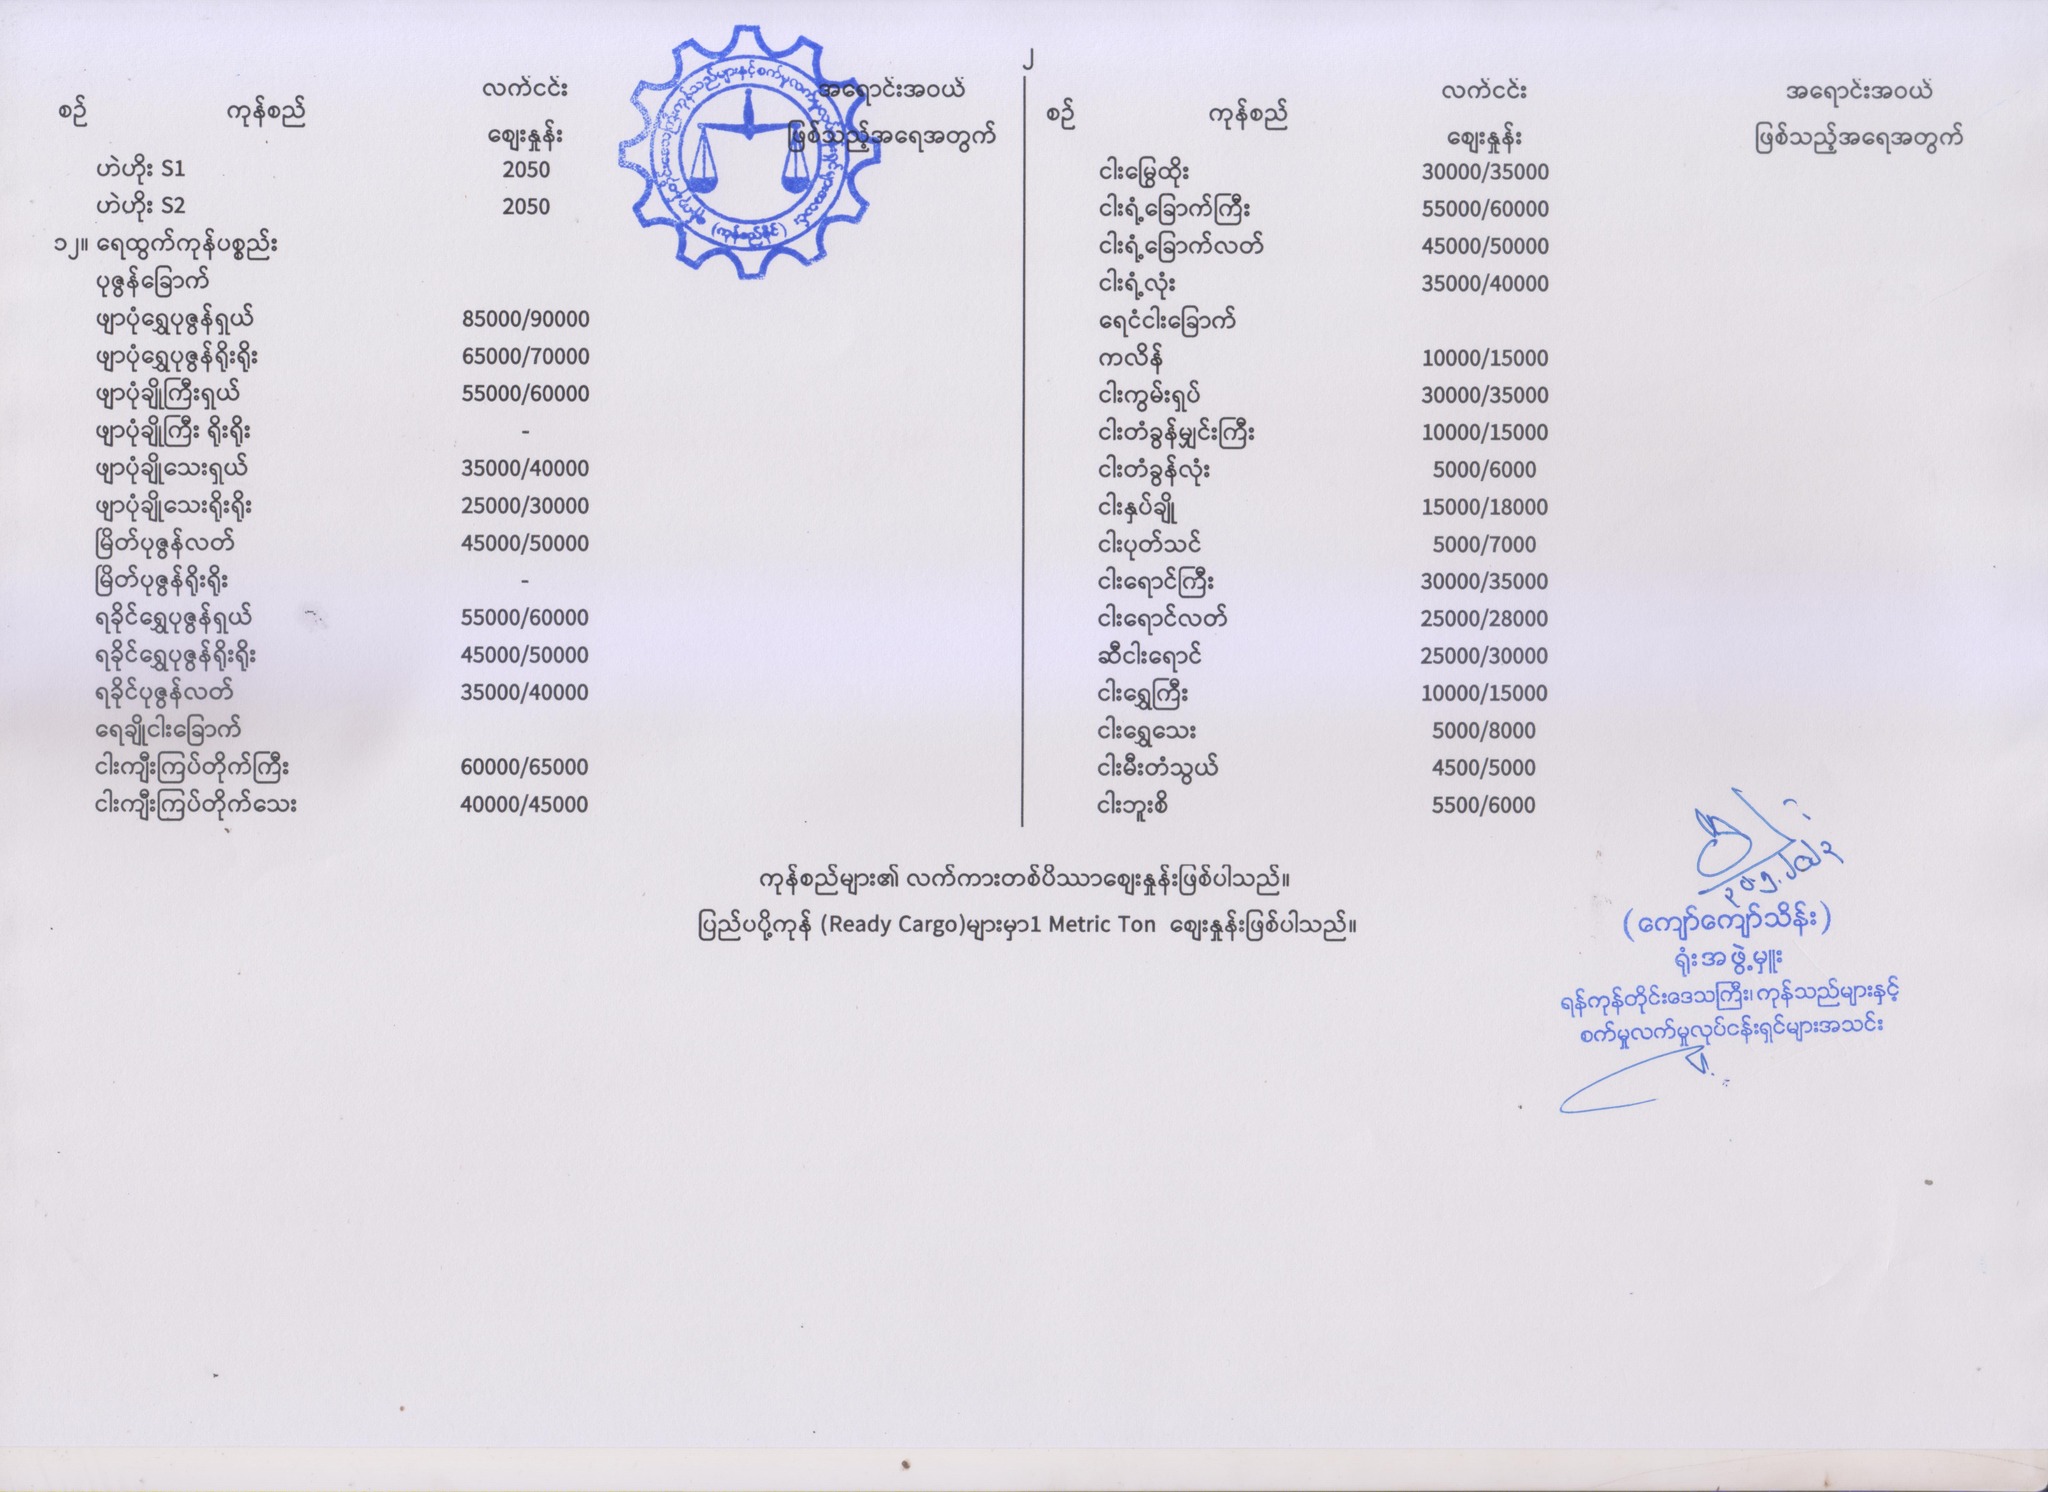 ၂
စဉ် ကုန်စည် လက်ငင်း စျေးနှုန်း အရောင်းအဝယ် ဖြစ်သည့်အရေအတွက်
ဟဲဟိုး S1 2050
ဟဲဟိုး S2 2050
၁၂။ ရေထွက်ကုန်ပစ္စည်း
ပုဇွန်ခြောက်
ဖျာပုံရွှေပုဇွန်ရှယ် 85000/90000
ဖျာပုံရွှေပုဇွန်ရိုးရိုး 65000/70000
ဖျာပုံချိုကြီးရှယ် 55000/60000
ဖျာပုံချိုကြီး ရိုးရိုး -
ဖျာပုံချိုသေးရှယ် 35000/40000
ဖျာပုံချိုသေးရိုးရိုး 25000/30000
မြိတ်ပုဇွန်လတ် 45000/50000
မြိတ်ပုဇွန်ရိုးရိုး -
ရခိုင်ရွှေပုဇွန်ရှယ် 55000/60000
ရခိုင်ရွှေပုဇွန်ရိုးရိုး 45000/50000
ရခိုင်ပုဇွန်လတ် 35000/40000
ရေချိုငါးခြောက်
ငါးကျီးကြပ်တိုက်ကြီး 60000/65000
ငါးကျီးကြပ်တိုက်သေး 40000/45000
စဉ် ကုန်စည် လက်ငင်း စျေးနှုန်း အရောင်းအဝယ် ဖြစ်သည့်အရေအတွက်
ငါးမြွေထိုး 30000/35000
ငါးရံ့ခြောက်ကြီး 55000/60000
ငါးရံ့ခြောက်လတ် 45000/50000
ငါးရံ့လုံး 35000/40000
ရေငံငါးခြောက်
ကလိန် 10000/15000
ငါးကွမ်းရှပ် 30000/35000
ငါးတံခွန်မျှင်းကြီး 10000/15000
ငါးတံခွန်လုံး 5000/6000
ငါးနှပ်ချို 15000/18000
ငါးပုတ်သင် 5000/7000
ငါးရောင်ကြီး 30000/35000
ငါးရောင်လတ် 25000/28000
ဆီငါးရောင် 25000/30000
ငါးရွှေကြီး 10000/15000
ငါးရွှေသေး 5000/8000
ငါးမီးတံသွယ် 4500/5000
ငါးဘူးစိ 5500/6000
ကုန်စည်များ၏ လက်ကားတစ်ပိဿာစျေးနှုန်းဖြစ်ပါသည်။
ပြည်ပပို့ကုန် (Ready Cargo)များမှာ1 Metric Ton စျေးနှုန်းဖြစ်ပါသည်။
(ကျော်ကျော်သိန်း)
ရုံးအဖွဲ့မှူး
ရန်ကုန်တိုင်းဒေသကြီး၊ကုန်သည်များနှင့်
စက်မှုလက်မှုလုပ်ငန်းရှင်များအသင်း